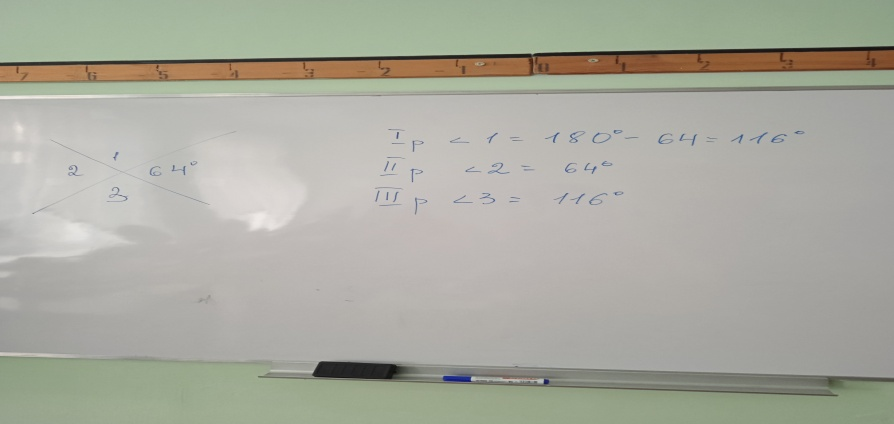 7 6 5 4 3 2 1 0 1 2 3 4
1
2 64°
3
I p < 1 = 180° - 64 = 116°
II p < 2 = 64°
III p < 3 = 116°